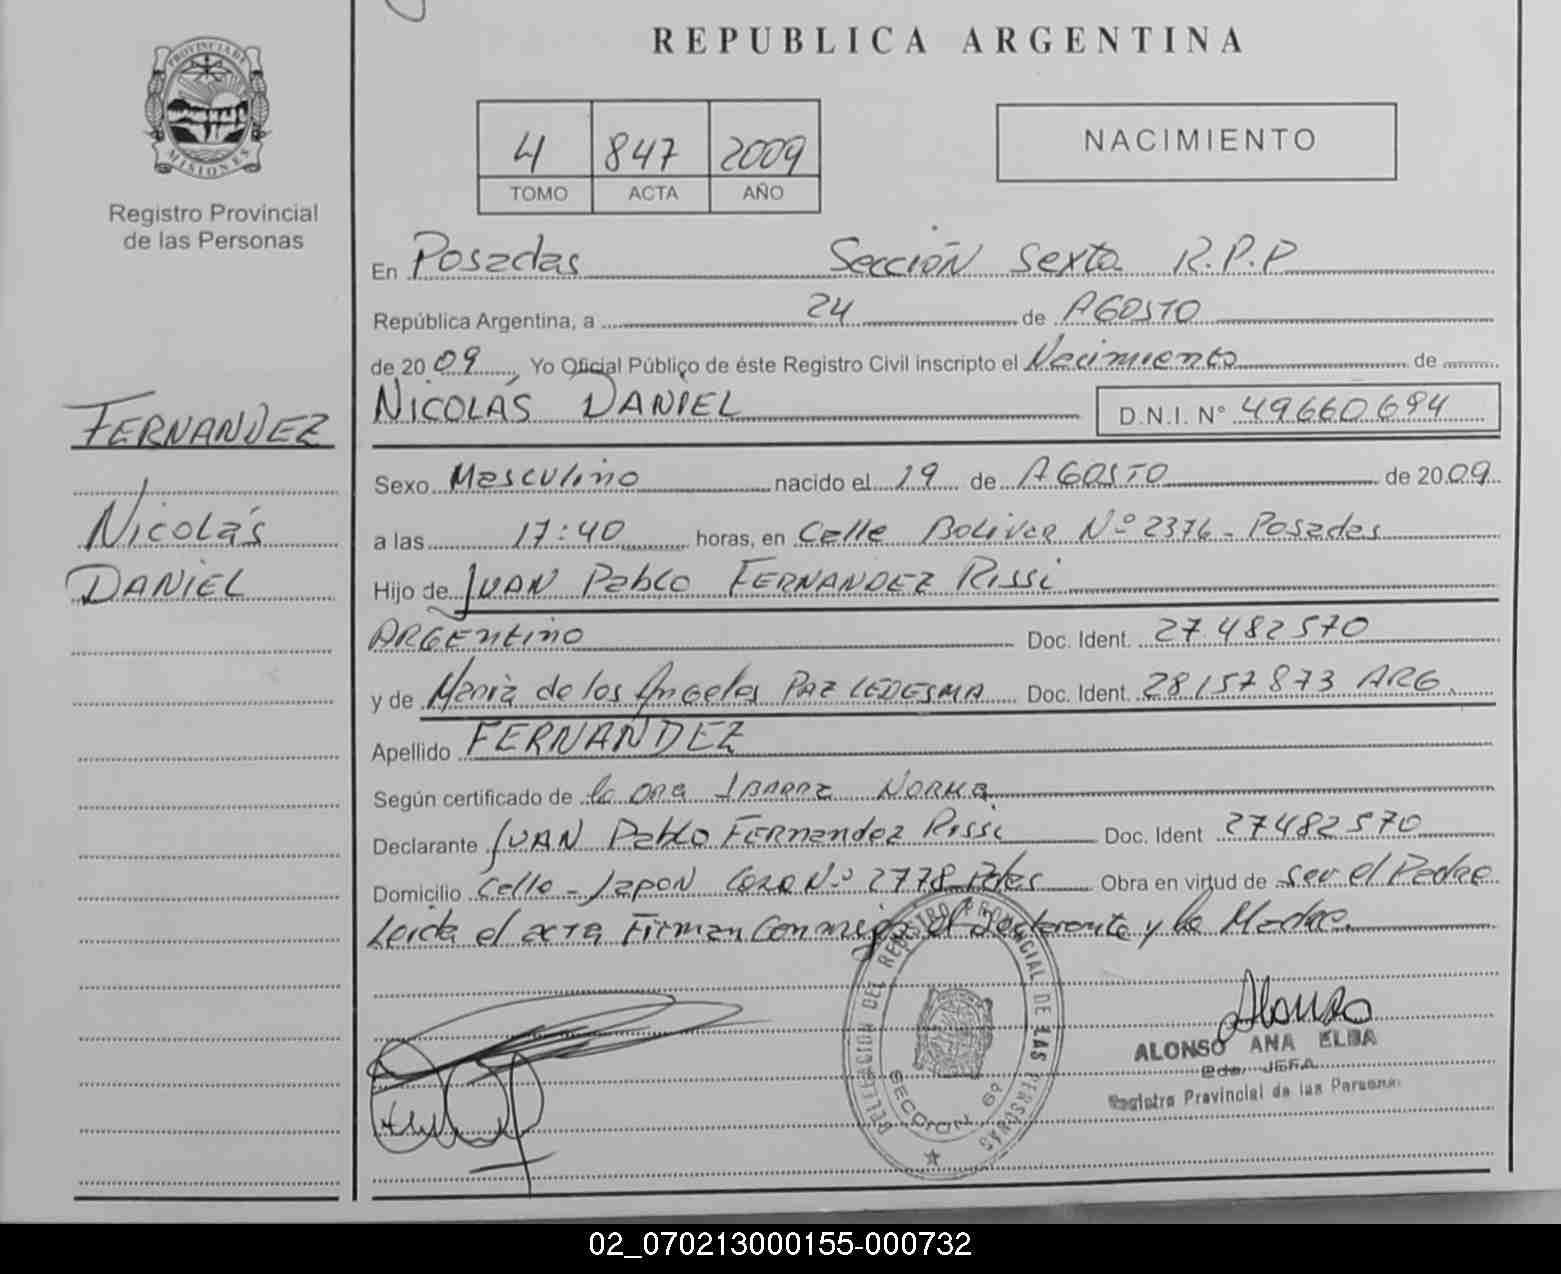 REPUBLICA ARGENTINA
PROVINCIA DE
MISIONES
Registro Provincial
de las Personas
4 847 2009
TOMO ACTA AÑO
NACIMIENTO
En Posadas Sección Sexta R.P.P
República Argentina, a 24 de AGOSTO
de 2009 Yo Oficial Público de éste Registro Civil inscripto el Nacimiento de
NICOLÁS DANIEL D.N.I. N° 49660694
FERNANDEZ
Nicolás
DANIEL
Sexo Masculino nacido el 19 de AGOSTO de 2009
a las 17:40 horas, en Calle Bolivar Nº 2376 - Posadas
Hijo de JUAN Pablo FERNANDEZ RISSI
ARGENTINO Doc. Ident. 27.482570
y de María de los Angeles PAZ LEDESMA Doc. Ident. 28.157873 ARG.
Apellido FERNANDEZ
Según certificado de la Dra IBARRA NORMA
Declarante JUAN Pablo FERNANDEZ RISSI Doc. Ident 27482570
Domicilio Calle - Japon Casa Nº 2778 Pdas Obra en virtud de ser el Padre
Leida el acta Firman Conmigo el Declarante y la Madre.
DELEGACION DEL REGISTRO PROVINCIAL DE LAS PERSONAS
SECCION 6º
Alonso
ALONSO ANA ELBA
JEFA
Registro Provincial de las Personas
02_070213000155-000732